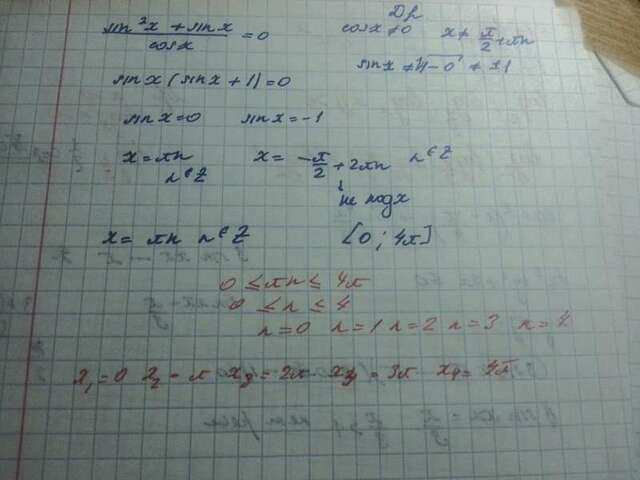 sin²x + sinx / cosx = 0
Др
cosx ≠ 0 x ≠ π/2 + πn
sinx ≠ √1-0 ≠ ±1
sinx (sinx + 1) = 0
sinx = 0 sinx = -1
x = πn n∈Z x = -π/2 + 2πn n∈Z
не подх
x = πn n∈Z [0 ; 4π]
0 ≤ πn ≤ 4π
0 ≤ n ≤ 4
n = 0 n = 1 n = 2 n = 3 n = 4
x₁ = 0 x₂ = π x₃ = 2π x₄ = 3π x₄ = 4π